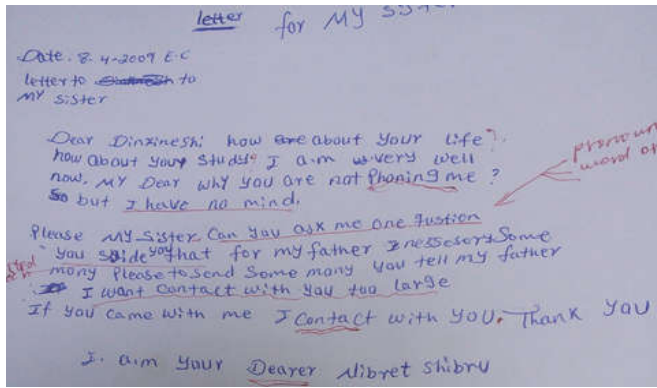 letter for My sister
Date. 8-4-2009 E.C
letter to to
MY sister
Dear Dinzineshi how are about your life?
how about your study? I a.m very well
now. MY Dear why you are not Phoning me?
So but I have no mind.
pronoun
word or
Please My sister Can you ask me one qustion
you that for my father I nessesory Some
mony Please to send Some mony you tell my father
I want Contact with you too large
If you came with me I Contact with you. Thank you
I. a.m your Dearer Nibret Shibru